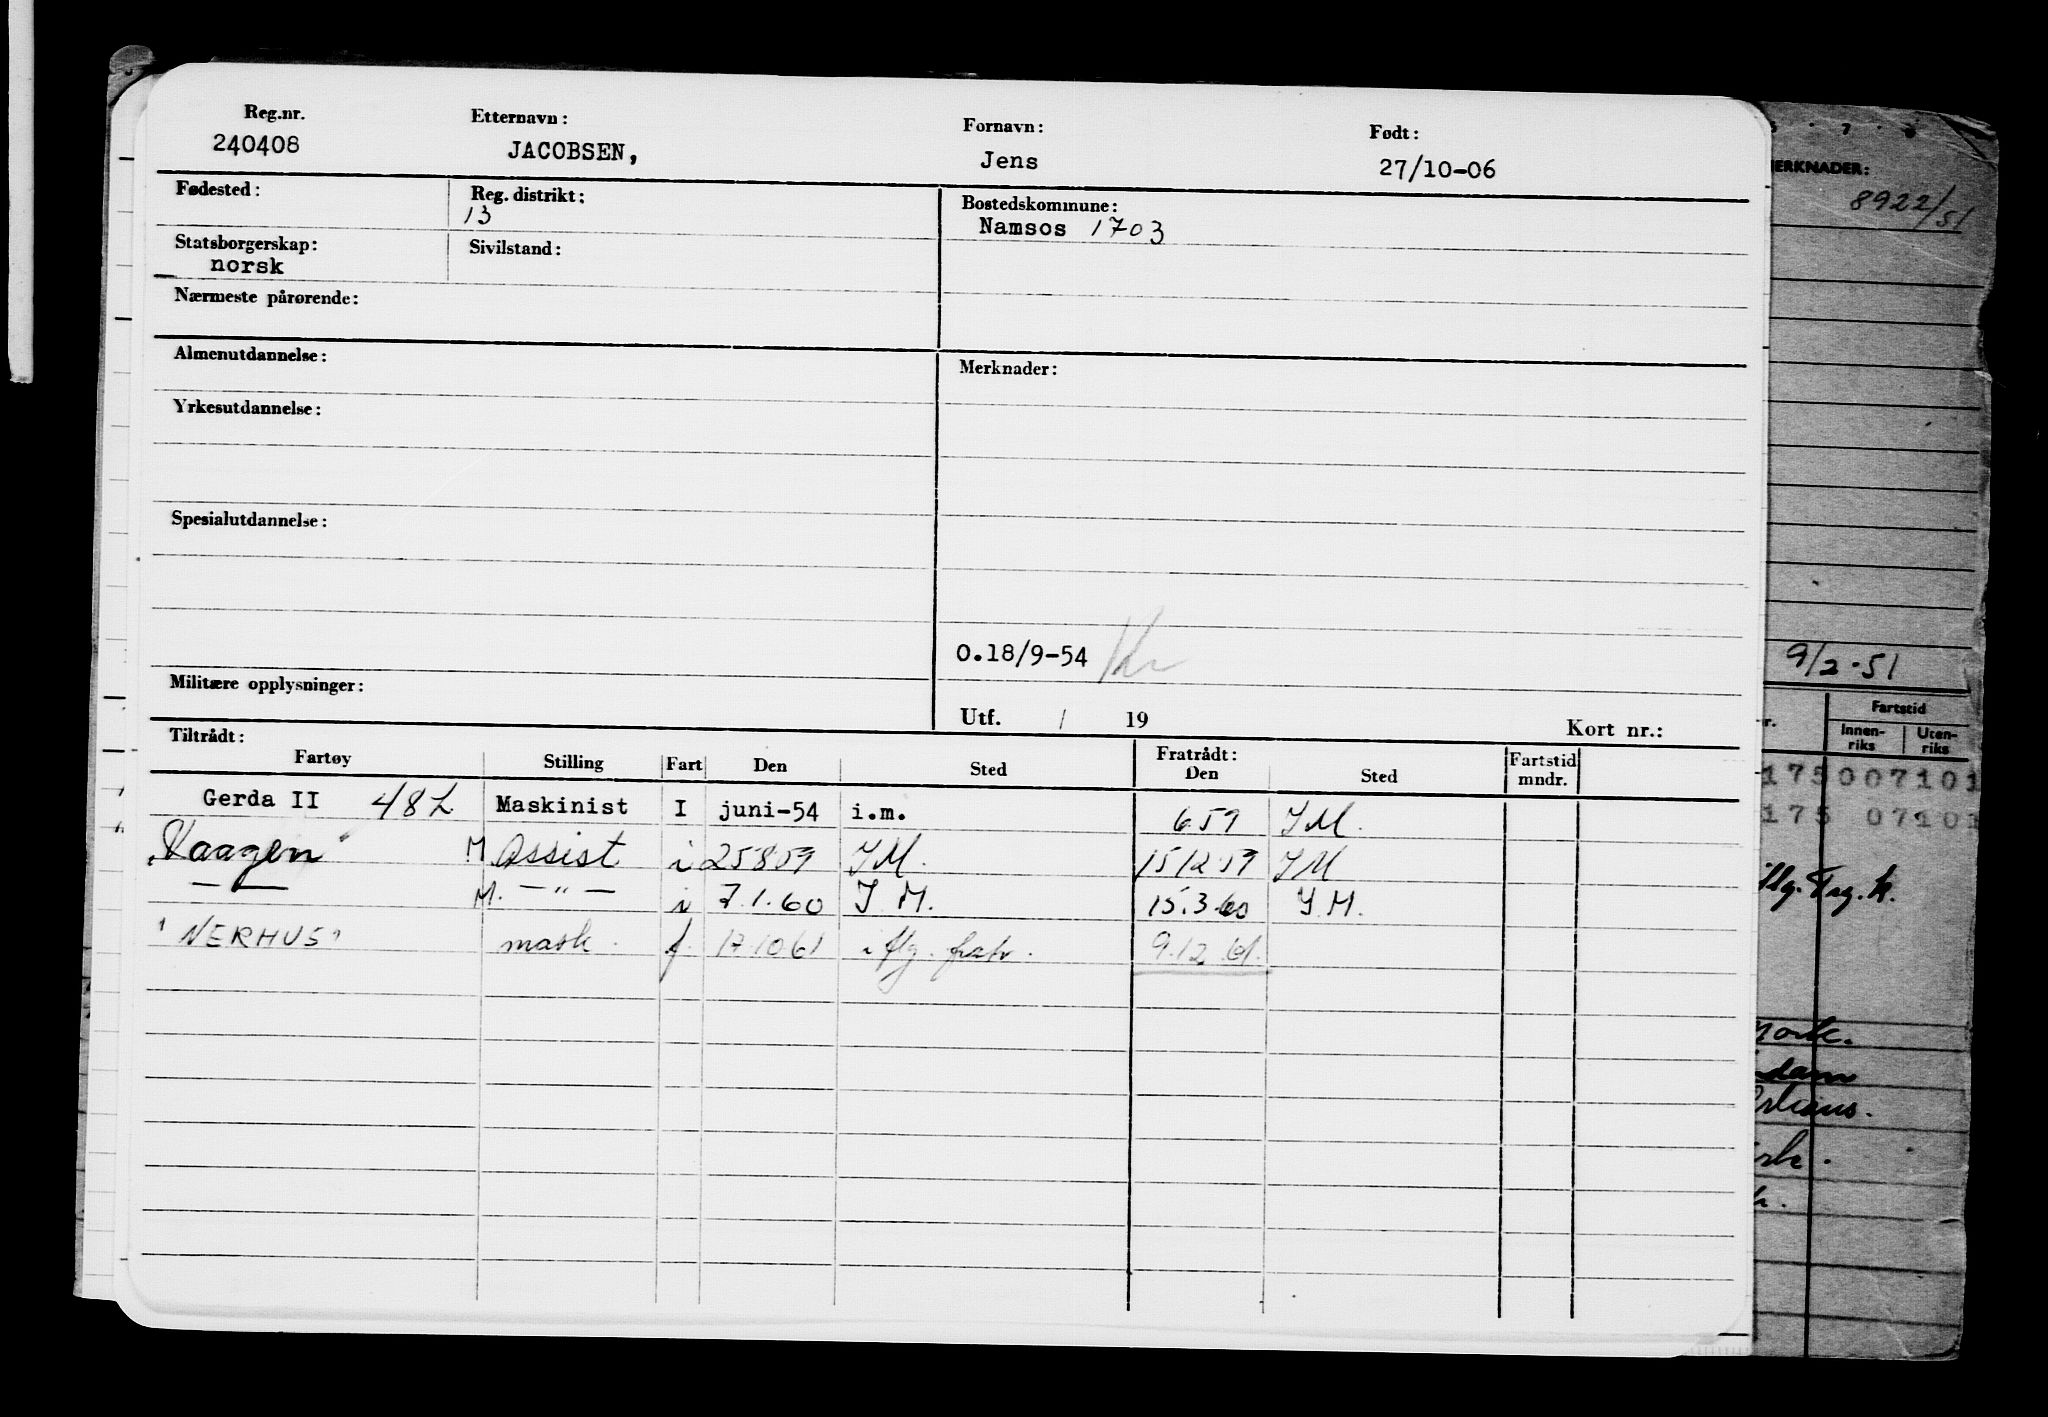 Reg.nr. Etternavn: Fornavn: Født:
240408 JACOBSEN, Jens 27/10-06
Fødested: Reg. distrikt: Bostedskommune:
13 Namsos 1703
Statsborgerskap: Sivilstand:
norsk
Nærmeste pårørende:
Almenutdannelse: Merknader:
Yrkesutdannelse:
Spesialutdannelse:
O.18/9-54
Militære opplysninger:
Utf. / 19 Kort nr.:
Tiltrådt: Fratrådt:
Fartøy Stilling Fart Den Sted Den Sted Fartstid mndr.
Gerda II 48L Maskinist I juni-54 i.m. 6 59 I M.
"Vaagen" M Assist i 25 8 59 I M. 15 12 59 I M
— — M. — " — i 7.1.60 I. M. 15.3 60 I. M.
"NERHUS" mask. f. 17.10 61 i flg. fratr. 9.12.61.
5 . 7 . 8
MERKNADER:
8922/51
9/2-51
r. Fartstid
Innen-riks Uten-riks
175007101
175 07101